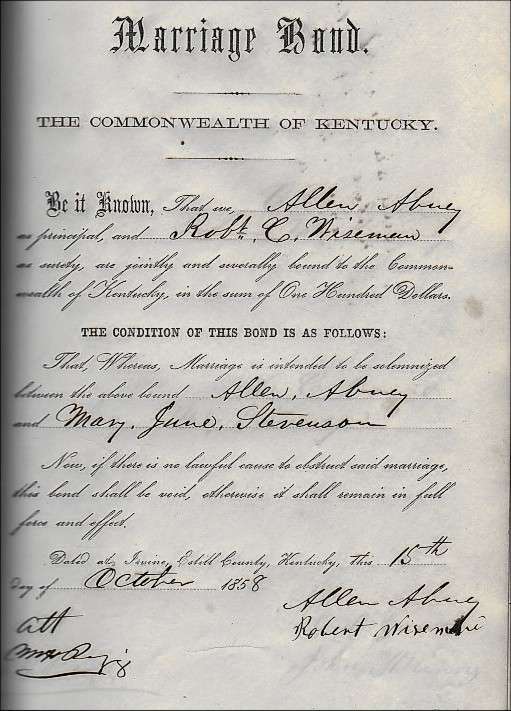 Marriage Bond.
THE COMMONWEALTH OF KENTUCKY.
Be it Known, That we, Allen Abney
as principal, and Robt. C. Wiseman
as surety, are jointly and severally bound to the Common-
wealth of Kentucky, in the sum of One Hundred Dollars.
THE CONDITION OF THIS BOND IS AS FOLLOWS:
That, Whereas, Marriage is intended to be solemnized
between the above bound Allen, Abney
and Mary, June, Stevenson
Now, if there is no lawful cause to obstruct said marriage,
this bond shall be void, otherwise it shall remain in full
force and effect.
Dated at Irvine, Estill County, Kentucky, this 15th
day of October 1858
Allen Abney
Robert Wiseman
att